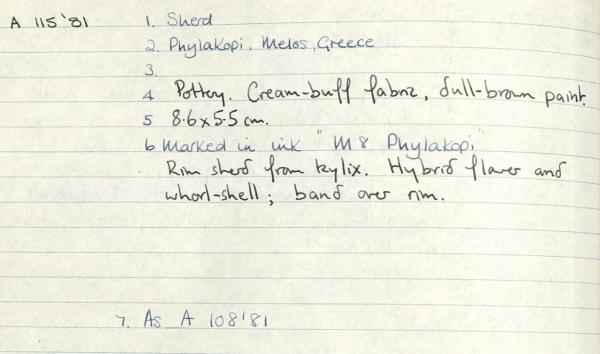 A 115'81 1. Sherd
2. Phylakopi, Melos, Greece
3.
4 Pottery. Cream-buff fabric, dull-brown paint.
5 8.6 x 5.5 cm.
6 Marked in ink "M 8 Phylakopi"
Rim sherd from kylix. Hybrid flower and
whorl-shell; band over rim.
7. As A 108'81